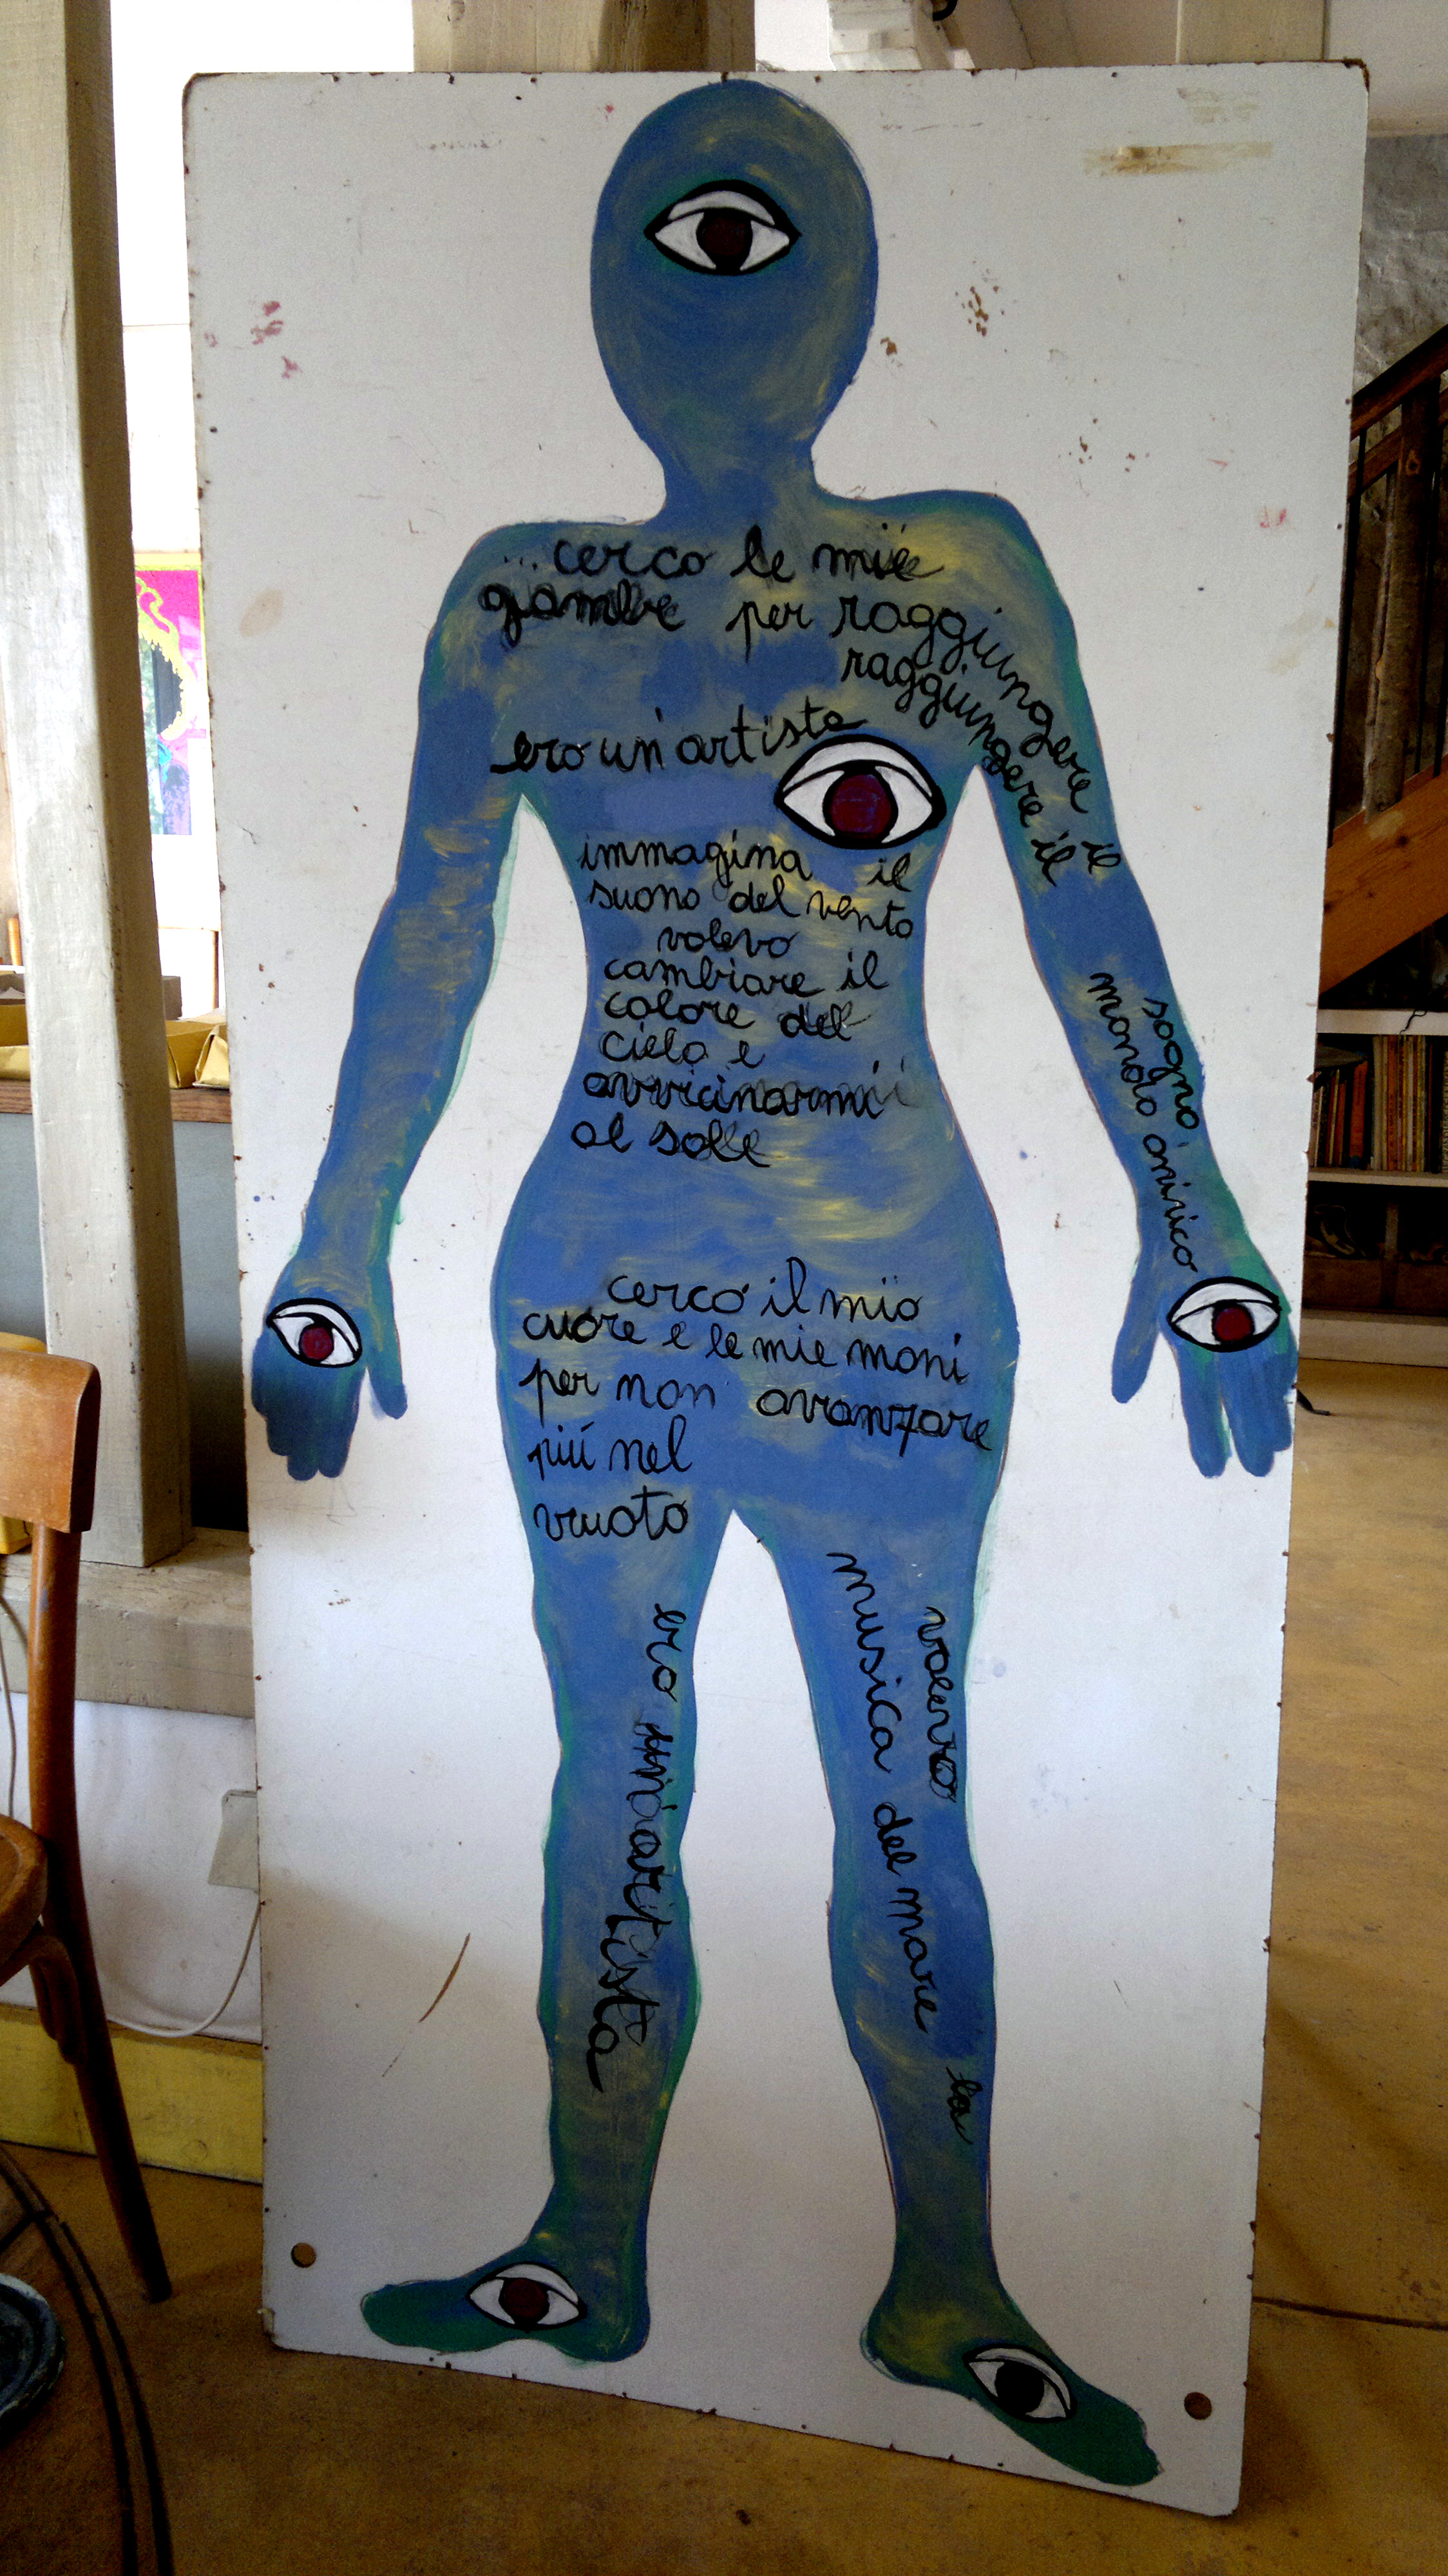 ...cerco le mie
gambe per raggiungere il
raggiungere il
sogno
mondo onirico
ero un'artista
immagina il
suono del vento
volevo
cambiare il
colore del
cielo e
avvicinarmi
al sole
cerco il mio
cuore e le mie mani
per non avanzare
più nel
vuoto
ero un'artista
volevo la
musica del mare